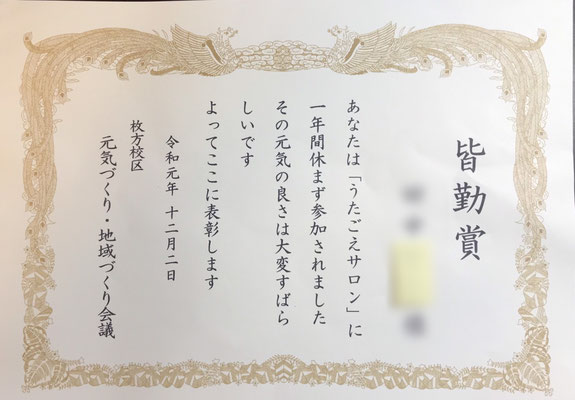 皆勤賞
様
あなたは「うたごえサロン」に
一年間休まず参加されました
その元気の良さは大変すばら
しいです
よってここに表彰します
令和元年 十二月二日
枚方校区
元気づくり・地域づくり会議